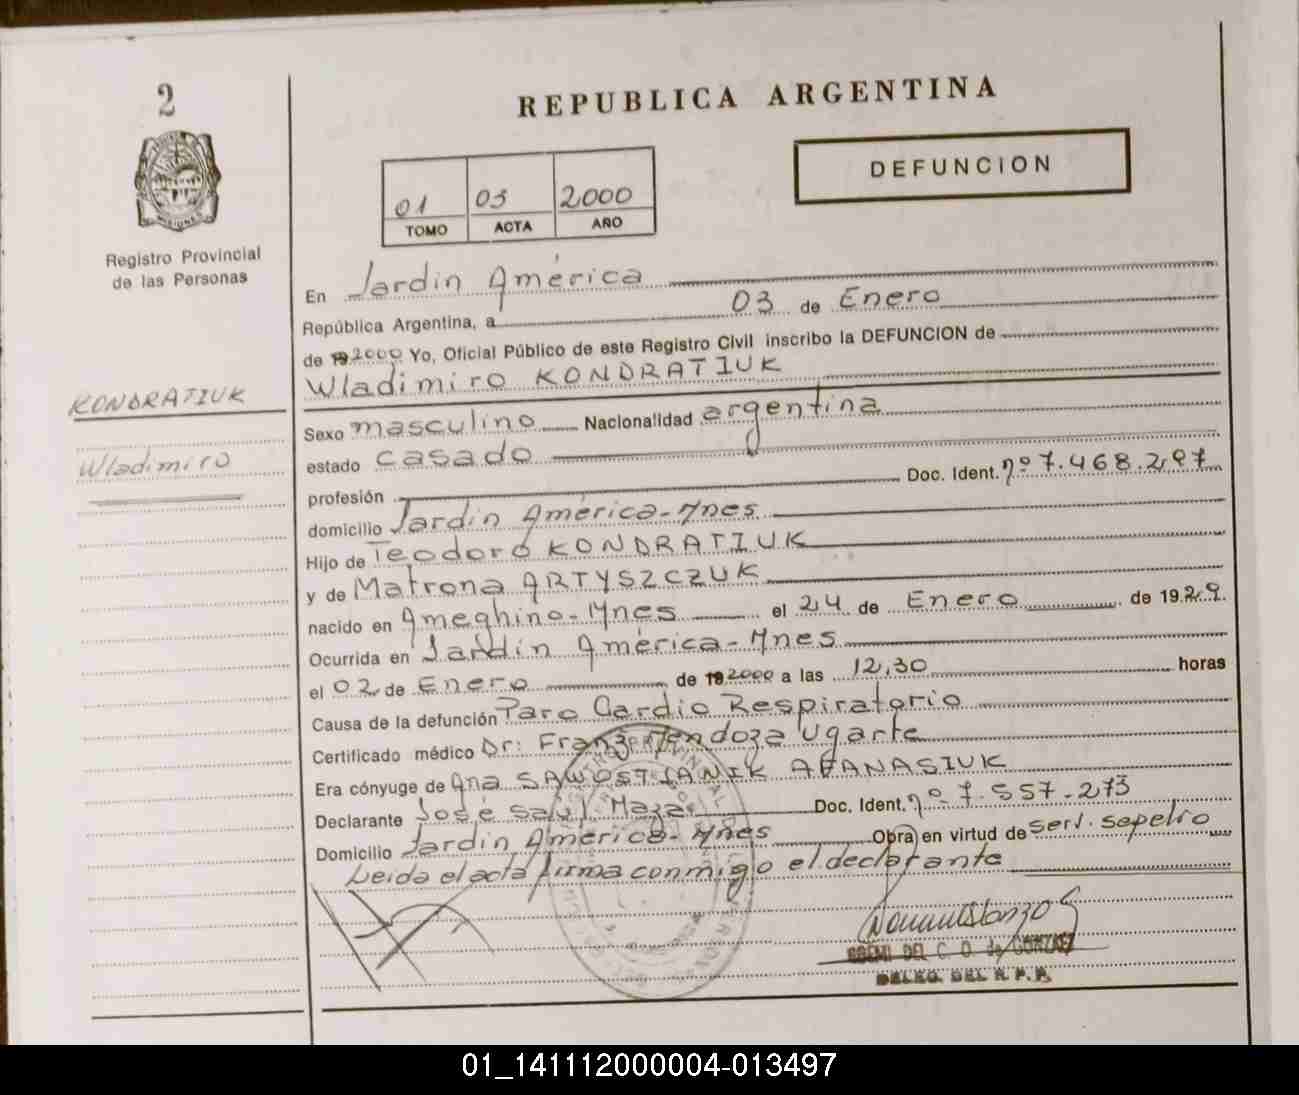 2
REPUBLICA ARGENTINA
DEFUNCION
01 03 2000
TOMO ACTA AÑO
Registro Provincial
de las Personas
En Jardin América
República Argentina, a 03 de Enero
de 19 2000 Yo, Oficial Público de este Registro Civil inscribo la DEFUNCION de
Wladimiro KONDRATIUK
KONDRATIUK
Wladimiro
Sexo masculino Nacionalidad argentina
estado casado
profesión Doc. Ident. nº 7.468.297
domicilio Jardin América-Mnes
Hijo de Teodoro KONDRATIUK
y de Matrona ARTYSZCZUK
nacido en Ameghino-Mnes el 24 de Enero de 1929
Ocurrida en Jardin América-Mnes
el 02 de Enero de 19 2000 a las 12,30 horas
Causa de la defunción Paro Cardio Respiratorio
Certificado médico Dr: Franz Mendoza Ugarte
Era cónyuge de Ana SAWOSTIANIK AFANASIUK
Declarante José Saul Maza Doc. Ident. nº 7.557.273
Domicilio Jardin América-Mnes Obra en virtud de serv. sepelio
Leida el acta firma conmigo el declarante
DELEG. DEL R.P.P.
01_141112000004-013497